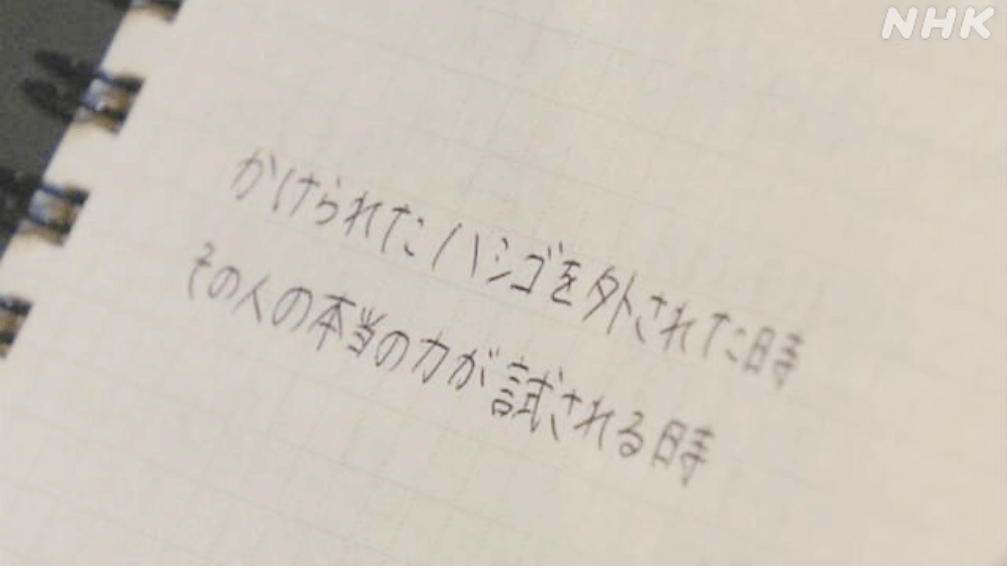 NHK
かけられたハシゴを外された時
その人の本当の力が試される時